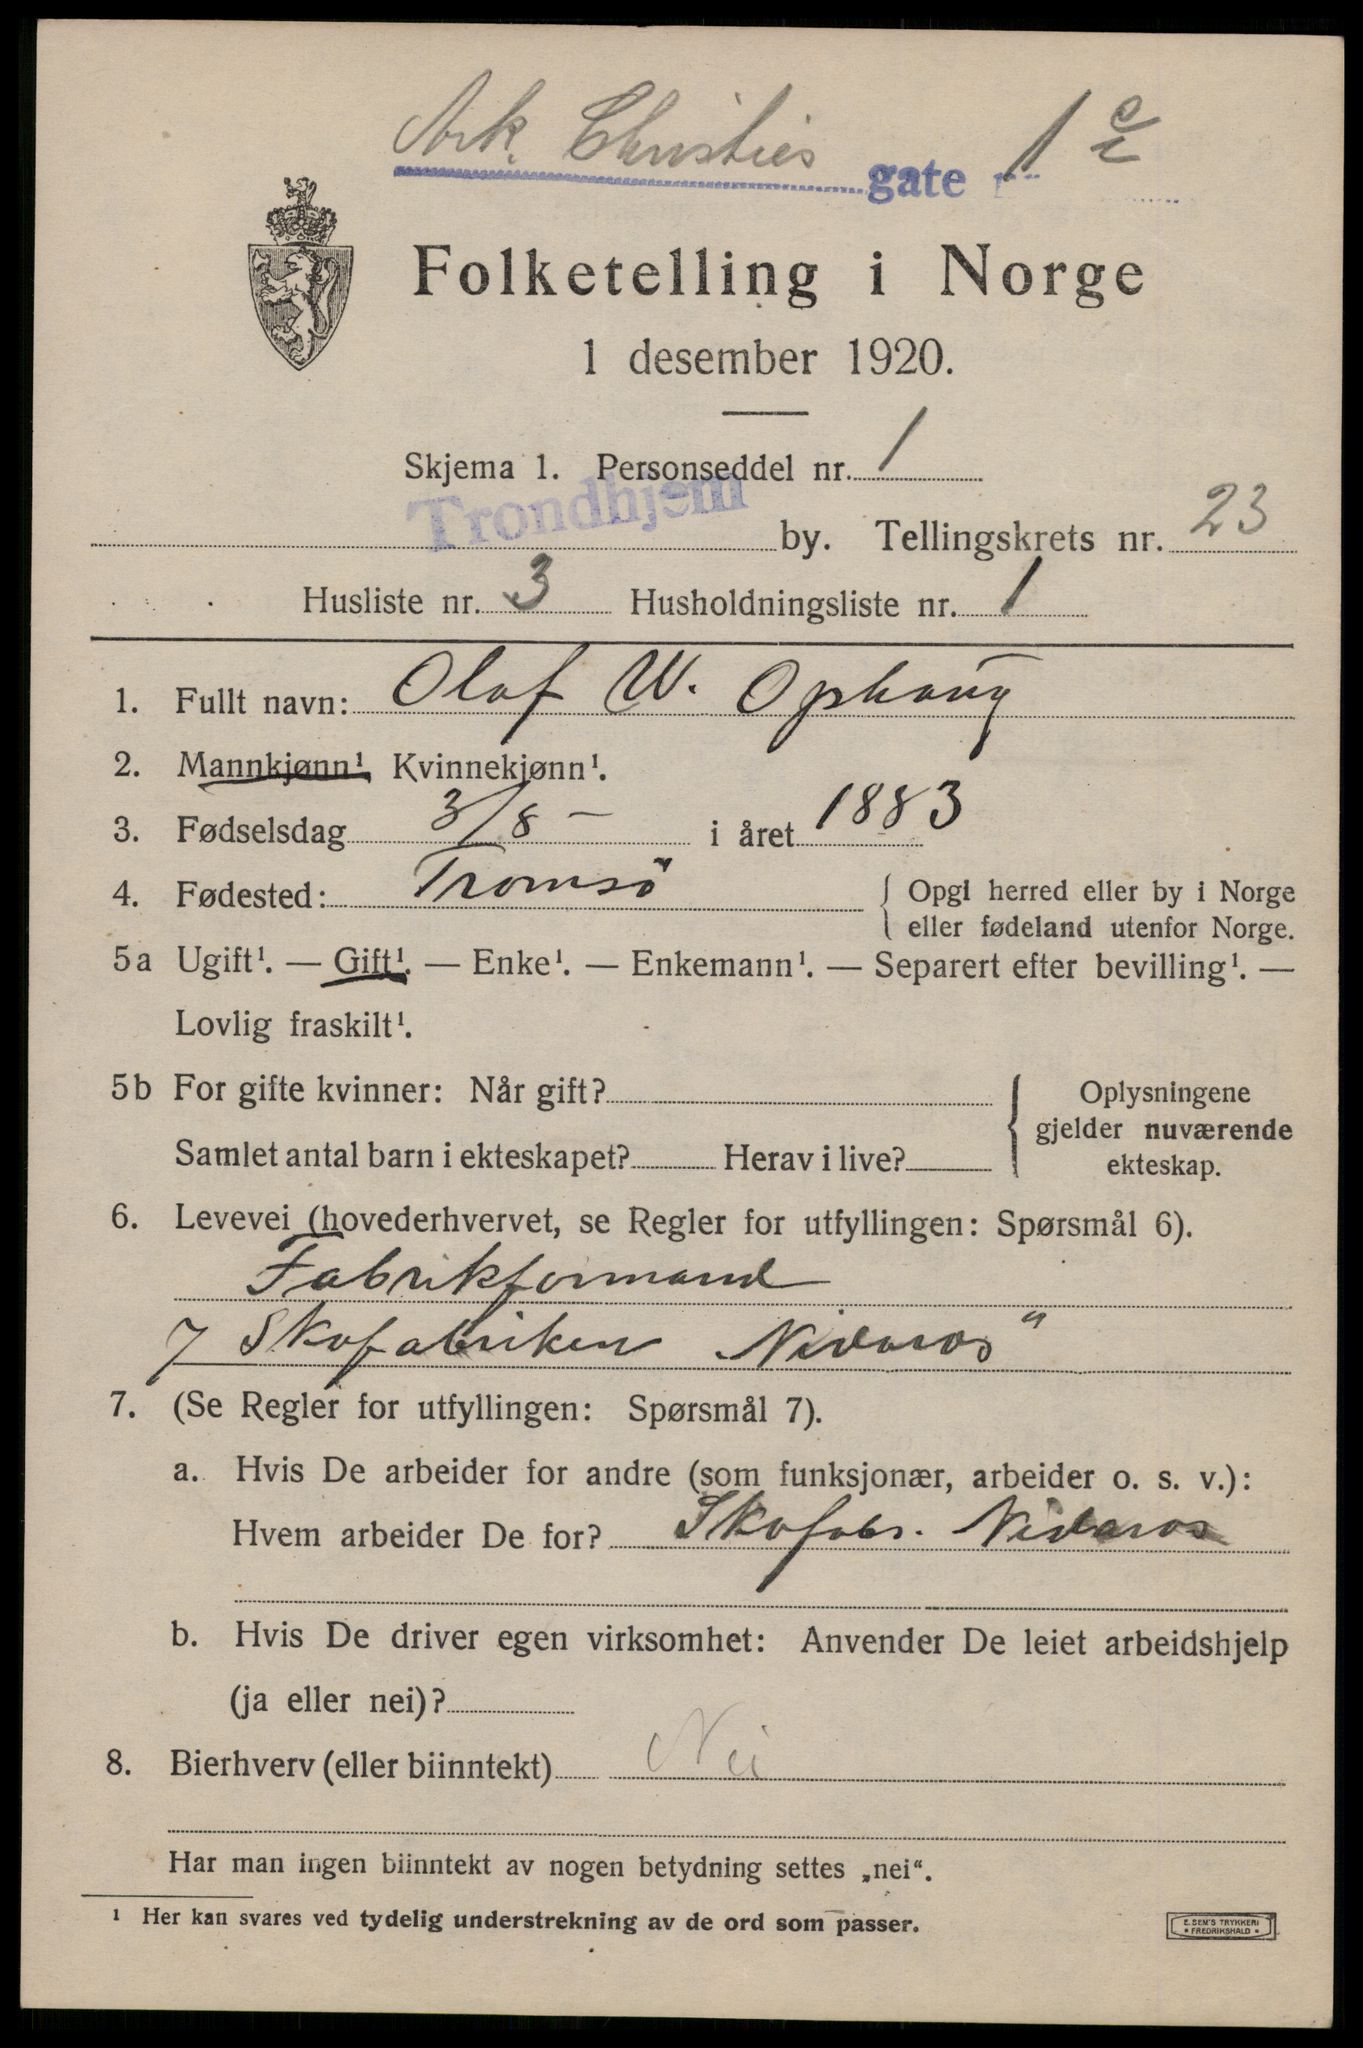 Ark. Christies gate 1 c
Folketelling i Norge
1 desember 1920.
Skjema 1. Personseddel nr. 1
Trondhjem by. Tellingskrets nr. 23
Husliste nr. 3 Husholdningsliste nr. 1
1. Fullt navn: Olaf W. Ophaug
2. Mannkjønn¹, Kvinnekjønn¹.
3. Fødselsdag 3/8 - i året 1883
4. Fødested: Tromsö { Opgi herred eller by i Norge
eller fødeland utenfor Norge.
5a Ugift¹. — Gift¹. — Enke¹. — Enkemann¹. — Separert efter bevilling¹. —
Lovlig fraskilt¹.
5b For gifte kvinner: Når gift? { Oplysningene
gjelder nuværende
Samlet antal barn i ekteskapet? Herav i live? ekteskap.
6. Levevei (hovederhvervet, se Regler for utfyllingen: Spørsmål 6).
Fabrikformand
Skofabriken Nidaros"
7. (Se Regler for utfyllingen: Spørsmål 7).
a. Hvis De arbeider for andre (som funksjonær, arbeider o. s. v.):
Hvem arbeider De for? Skofabr. Nidaros
b. Hvis De driver egen virksomhet: Anvender De leiet arbeidshjelp
(ja eller nei)?
8. Bierhverv (eller biinntekt) Nei
Har man ingen biinntekt av nogen betydning settes „nei“.
¹ Her kan svares ved tydelig understrekning av de ord som passer.
E. SEM'S TRYKKERI
* FREDRIKSHALD *